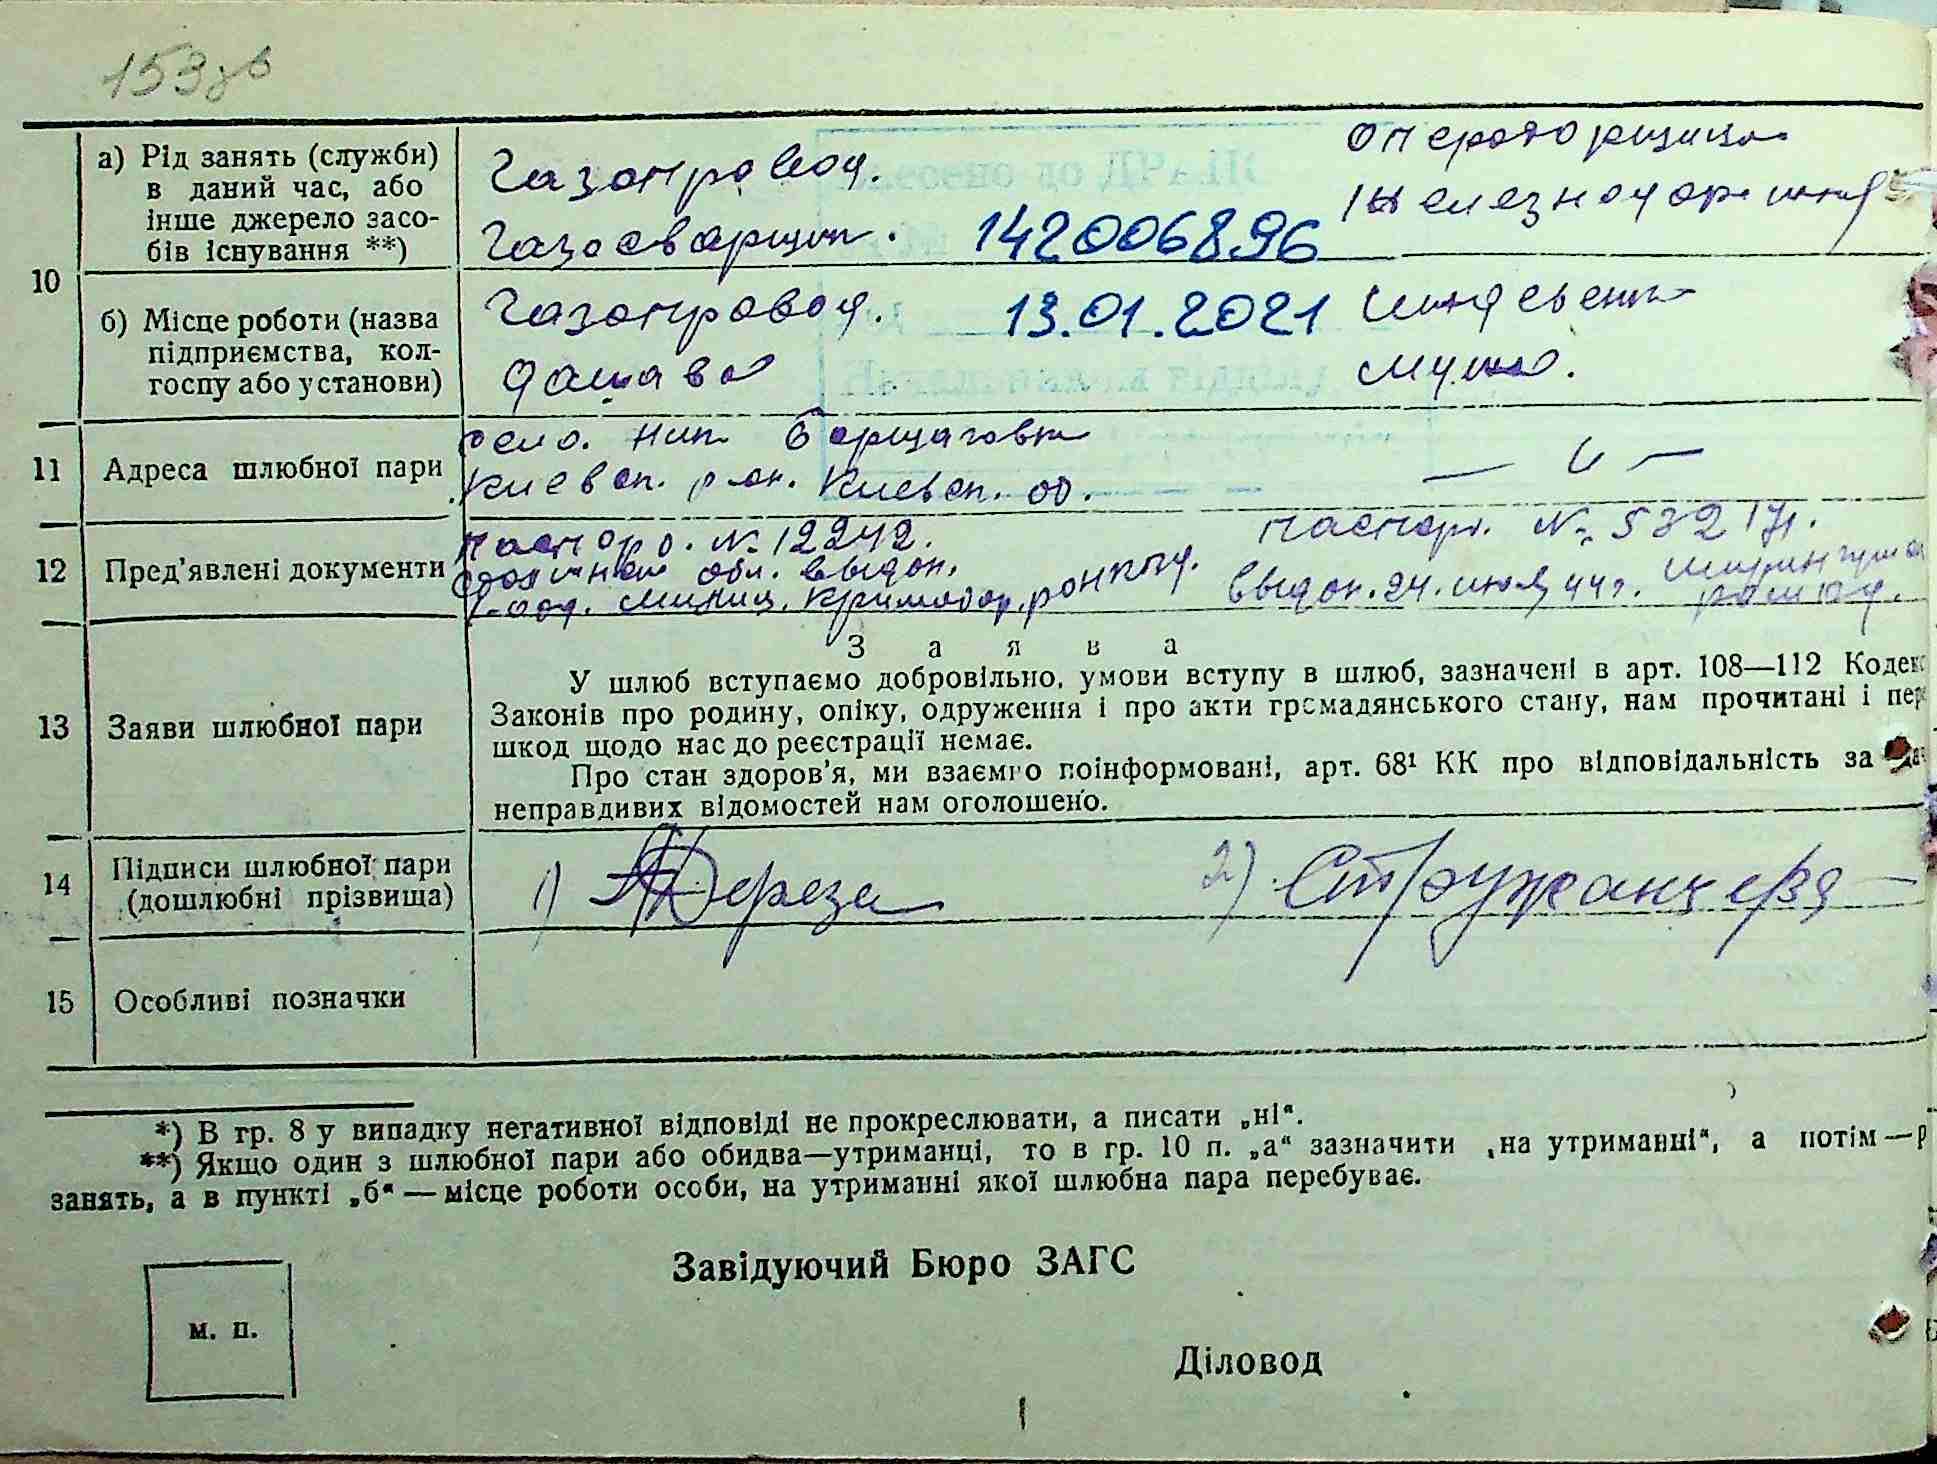 153зв
10
а) Рід занять (служби) в даний час, або інше джерело засобів існування **)
Газопровод.
Газосварщик.
142006896
операторщица
б) Місце роботи (назва підприємства, колгоспу або установи)
Газопровод.
Дашава
13.01.2021
мужа.
11
Адреса шлюбної пари
село. Ник Борщаговка
Киевск. р-он. Киевск. об.
— " —
12
Пред'явлені документи
Паспорт. № 12242.
обл. выдан.
милиц.
Паспорт. №
выдан. 24. 44г.
13
Заяви шлюбної пари
Заява
У шлюб вступаємо добровільно, умови вступу в шлюб, зазначені в арт. 108—112 Кодек
Законів про родину, опіку, одруження і про акти громадянського стану, нам прочитані і пер
шкод щодо нас до реєстрації немає.
Про стан здоров'я, ми взаємно поінформовані, арт. 68¹ КК про відповідальність за
неправдивих відомостей нам оголошено.
14
Підписи шлюбної пари
(дошлюбні прізвища)
1) Дереза
2) Стружанцева
15
Особливі позначки
*) В гр. 8 у випадку негативної відповіді не прокреслювати, а писати „ні“.
**) Якщо один з шлюбної пари або обидва—утриманці, то в гр. 10 п. „а“ зазначити „на утриманні“, а потім —
занять, а в пункті „б“ — місце роботи особи, на утриманні якої шлюбна пара перебуває.
Завідуючий Бюро ЗАГС
м. п.
Діловод